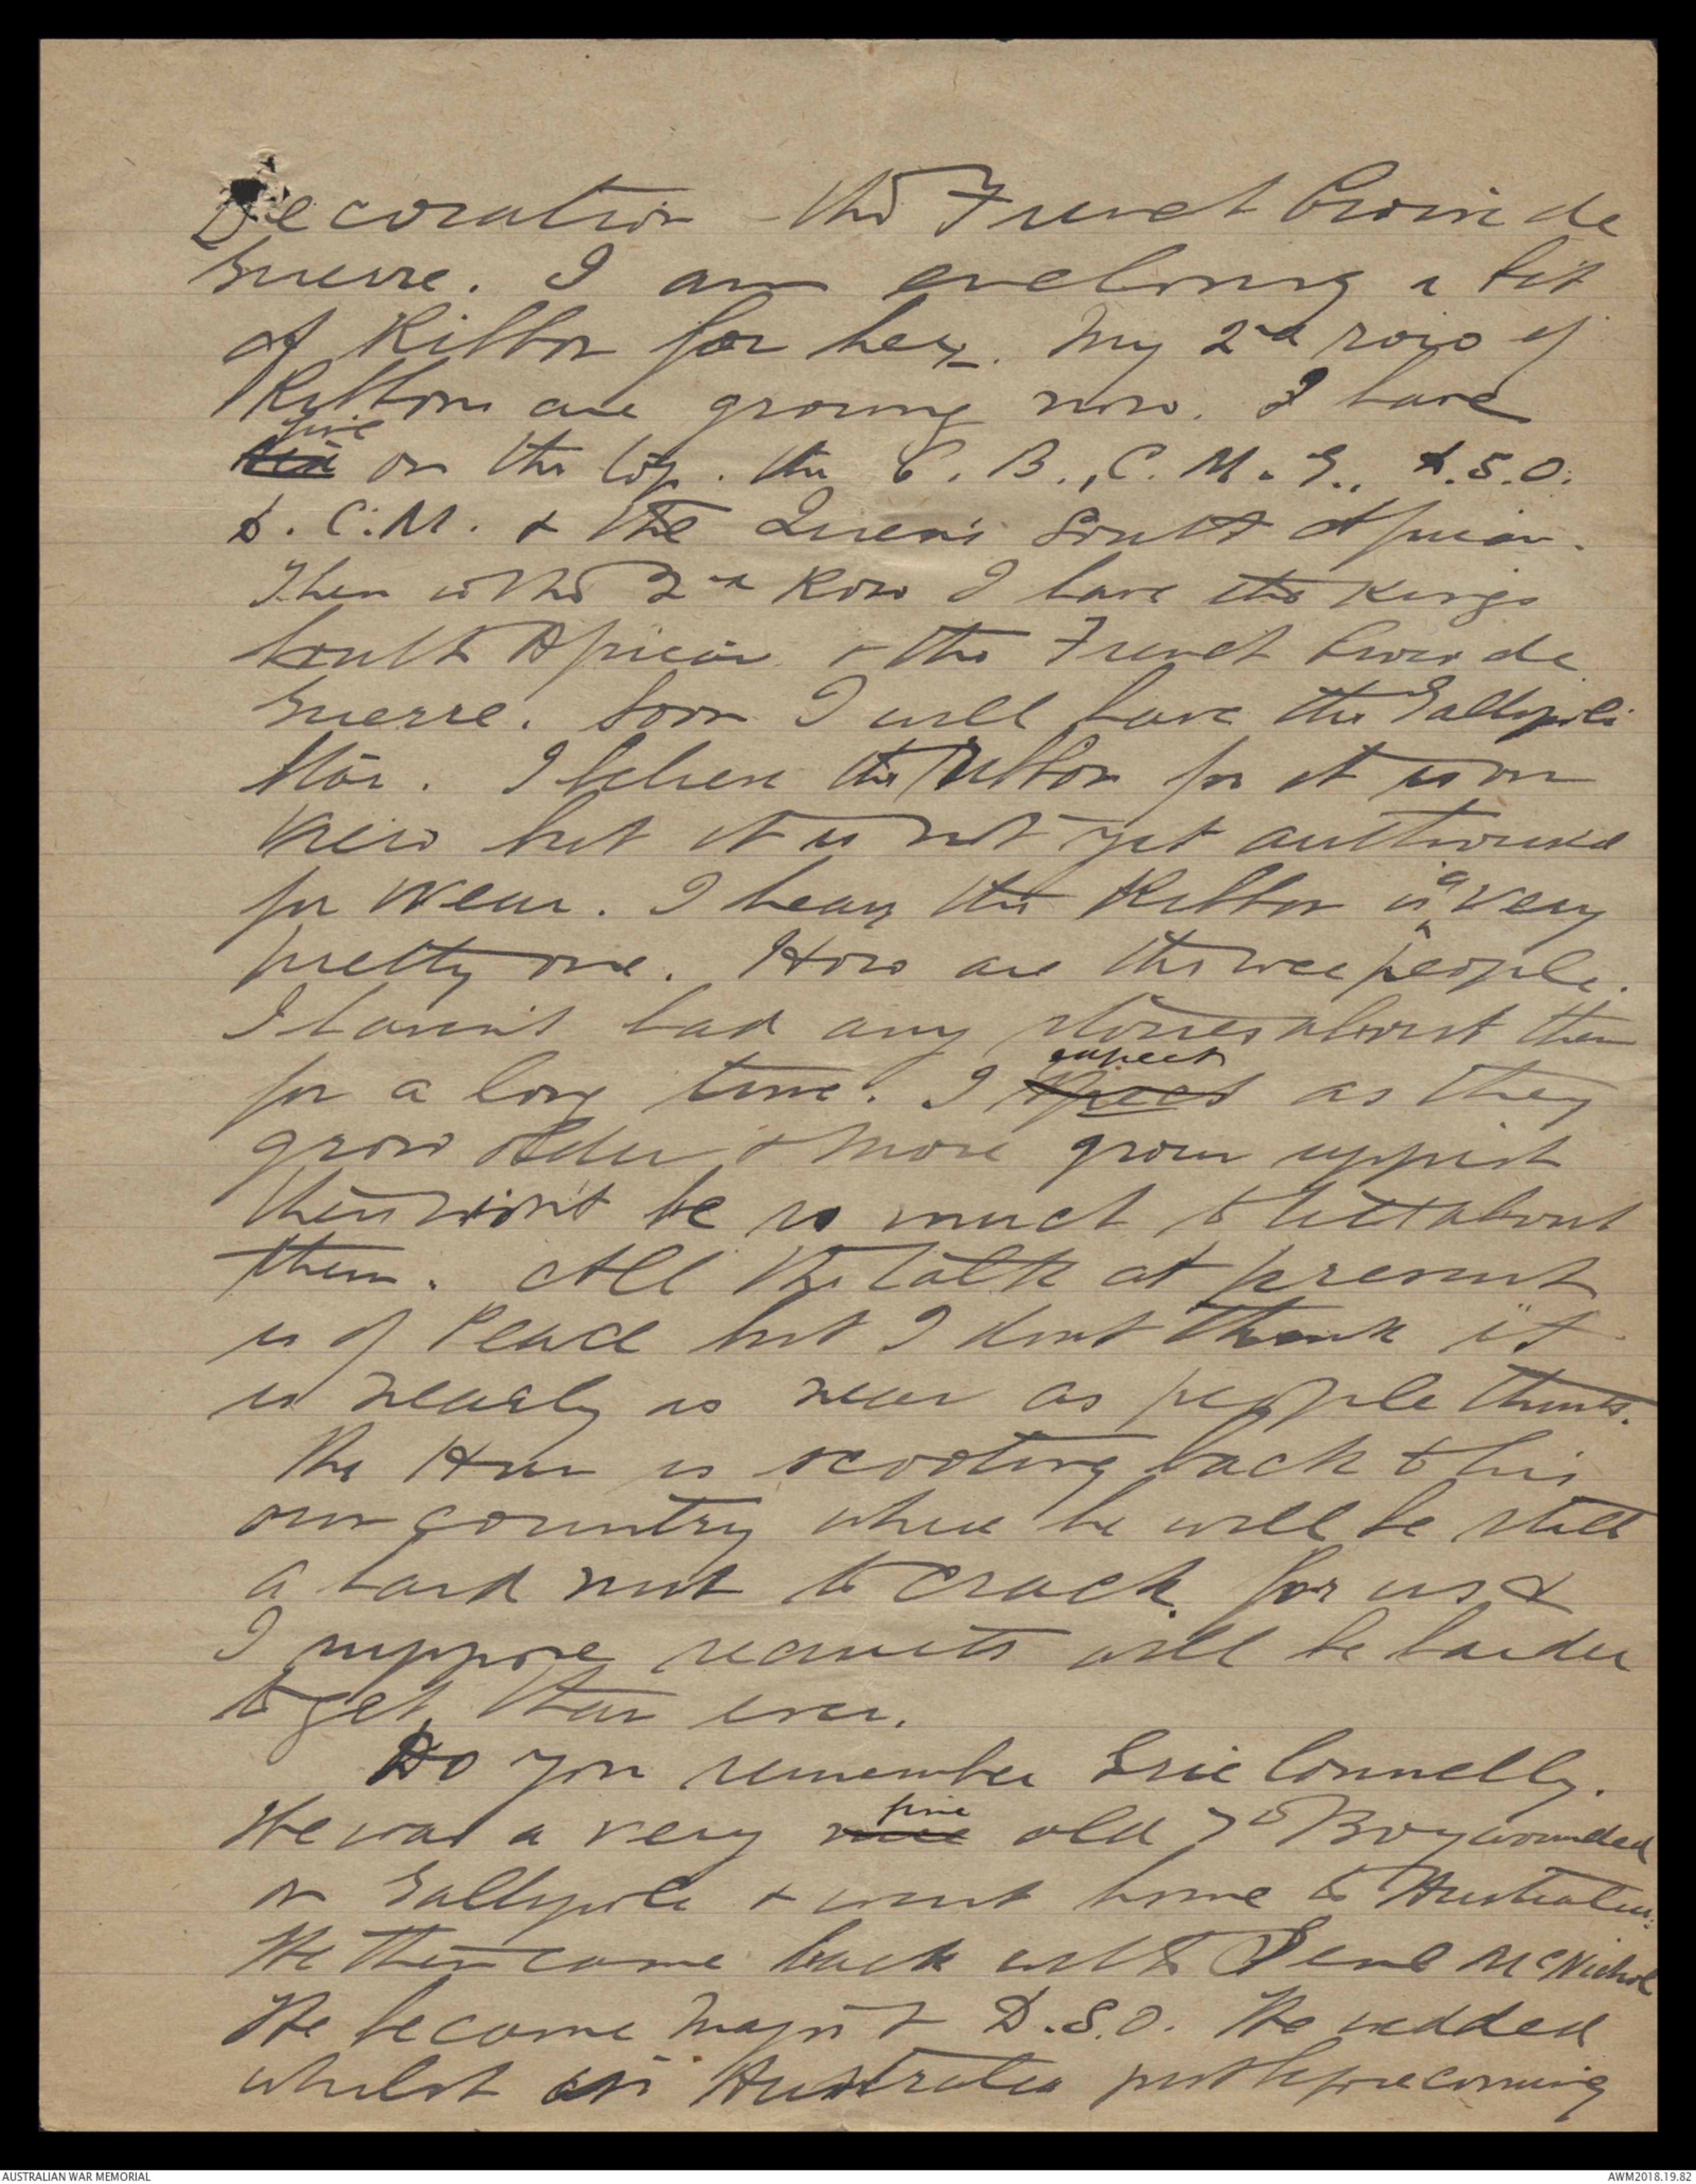 Decoration - the French Croix de
Guerre. I am enclosing a bit
of Ribbon for hers. My 2nd row of
Ribbons are growing now. I have
five
on the top. the C. B., C. M. G., D.S.O.
D. C. M. & the Queen's South African.
Then in the 2nd Row I have the Kings
South African & the French Croix de
Guerre. Soon I will have the Gallipoli
Star. I believe the Ribbon for it is on
view but it is not yet authorised
for wear. I hear the Ribbon is a very
pretty one. How are the wee people.
I haven't had any stories about them
for a long time. I expect as they
grow older & more grown uppish
there won't be so much to tell about
them. All the talk at present
is of Peace but I dont think it
is nearly as near as people think.
The Hun is scooting back to his
own country where he will be still
a hard nut to crack for us &
I suppose recruits will be harder
to get than ever.
Do you remember Eric Connelly.
He was a very fine old 7th Boy wounded
on Gallipoli & went home to Australia.
He then came back with Genl McNichol
He became Major & D.S.O. He wedded
whilst in Australia just before coming
AUSTRALIAN WAR MEMORIAL
AWM2018.19.82